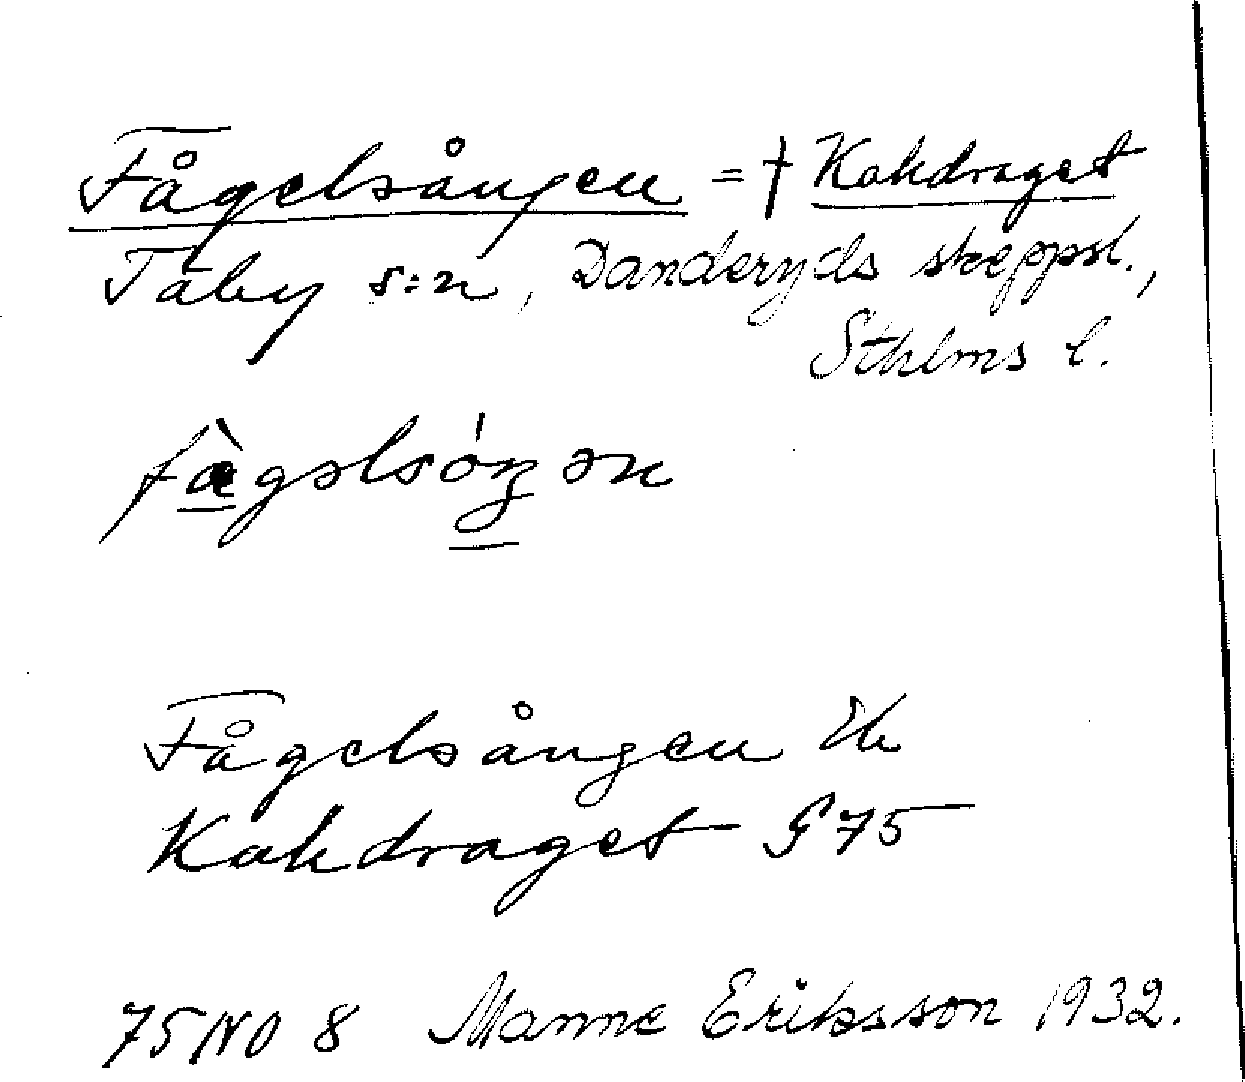 Fågelsången = † Kakdraget
Täby s:n, Danderyds skeppsl.,
Sthlms l.
fàgəlsóŋən
Fågelsången Ek
Kakdraget G 75
75 NO 8 Manne Eriksson 1932.